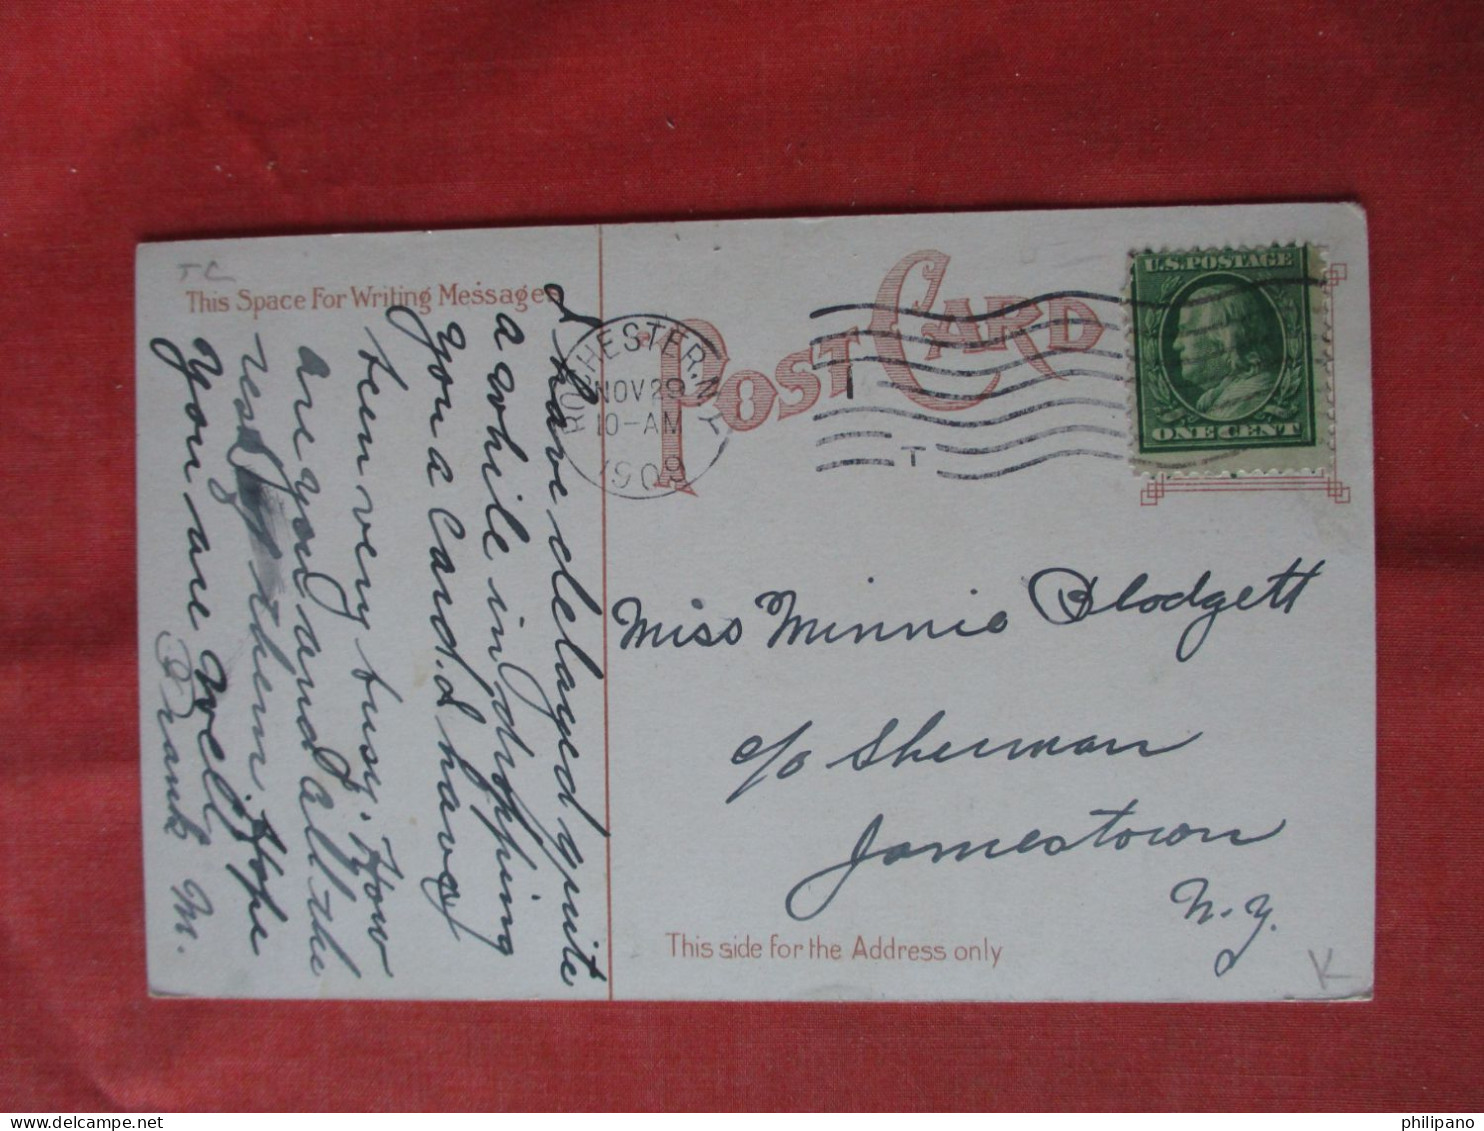 T C
This Space For Writing Messages
I have delayed quite
a while in dropping
you a Card. I have
been very busy. How
are you and all the
rest of them. Hope
you are well.
Frank M.
POST CARD
ROCHESTER, N.Y.
NOV 29
10-AM
1909
1
T
U.S. POSTAGE
ONE CENT
Miss Minnie Blodgett
c/o Sherman
Jamestown
N.Y.
This side for the Address only
K
philipano